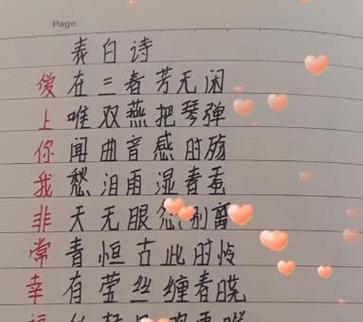 Page.
表白诗
爱在三春芳无闲
上唯双燕把琴弹
你闻曲音感时殇
我愁泪雨湿青蛋
非天无眼忍别离
常青恒古此时怜
幸有莹丝缠春晓